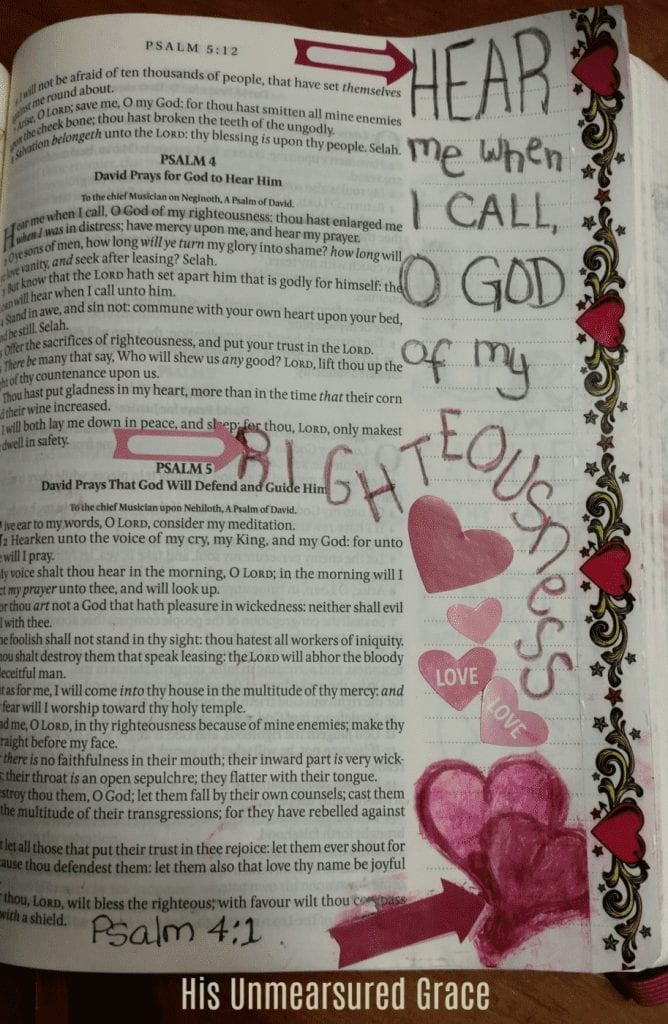 PSALM 5:12
will not be afraid of ten thousands of people, that have set themselves
me round about.
Arise, O LORD; save me, O my God: for thou hast smitten all mine enemies
the cheek bone; thou hast broken the teeth of the ungodly.
Salvation belongeth unto the LORD: thy blessing is upon thy people. Selah.
PSALM 4
David Prays for God to Hear Him
To the chief Musician on Neginoth, A Psalm of David.
Hear me when I call, O God of my righteousness: thou hast enlarged me
when I was in distress; have mercy upon me, and hear my prayer.
O ye sons of men, how long will ye turn my glory into shame? how long will
love vanity, and seek after leasing? Selah.
But know that the LORD hath set apart him that is godly for himself: the
will hear when I call unto him.
Stand in awe, and sin not: commune with your own heart upon your bed,
be still. Selah.
Offer the sacrifices of righteousness, and put your trust in the LORD.
There be many that say, Who will shew us any good? LORD, lift thou up the
of thy countenance upon us.
Thou hast put gladness in my heart, more than in the time that their corn
their wine increased.
I will both lay me down in peace, and sleep: for thou, LORD, only makest
dwell in safety.
PSALM 5
David Prays That God Will Defend and Guide Him
To the chief Musician upon Nehiloth, A Psalm of David.
ive ear to my words, O LORD, consider my meditation.
2 Hearken unto the voice of my cry, my King, and my God: for unto
will I pray.
My voice shalt thou hear in the morning, O LORD; in the morning will I
my prayer unto thee, and will look up.
or thou art not a God that hath pleasure in wickedness: neither shall evil
with thee.
he foolish shall not stand in thy sight: thou hatest all workers of iniquity.
hou shalt destroy them that speak leasing: the LORD will abhor the bloody
deceitful man.
t as for me, I will come into thy house in the multitude of thy mercy: and
fear will I worship toward thy holy temple.
ad me, O LORD, in thy righteousness because of mine enemies; make thy
raight before my face.
there is no faithfulness in their mouth; their inward part is very wick-
their throat is an open sepulchre; they flatter with their tongue.
stroy thou them, O God; let them fall by their own counsels; cast them
the multitude of their transgressions; for they have rebelled against
let all those that put their trust in thee rejoice: let them ever shout for
ause thou defendest them: let them also that love thy name be joyful
thou, LORD, wilt bless the righteous; with favour wilt thou compass
with a shield.
Psalm 4:1
HEAR
me when
I CALL,
O GOD
of my
RIGHTEOUSness
LOVE
LOVE
His Unmearsured Grace